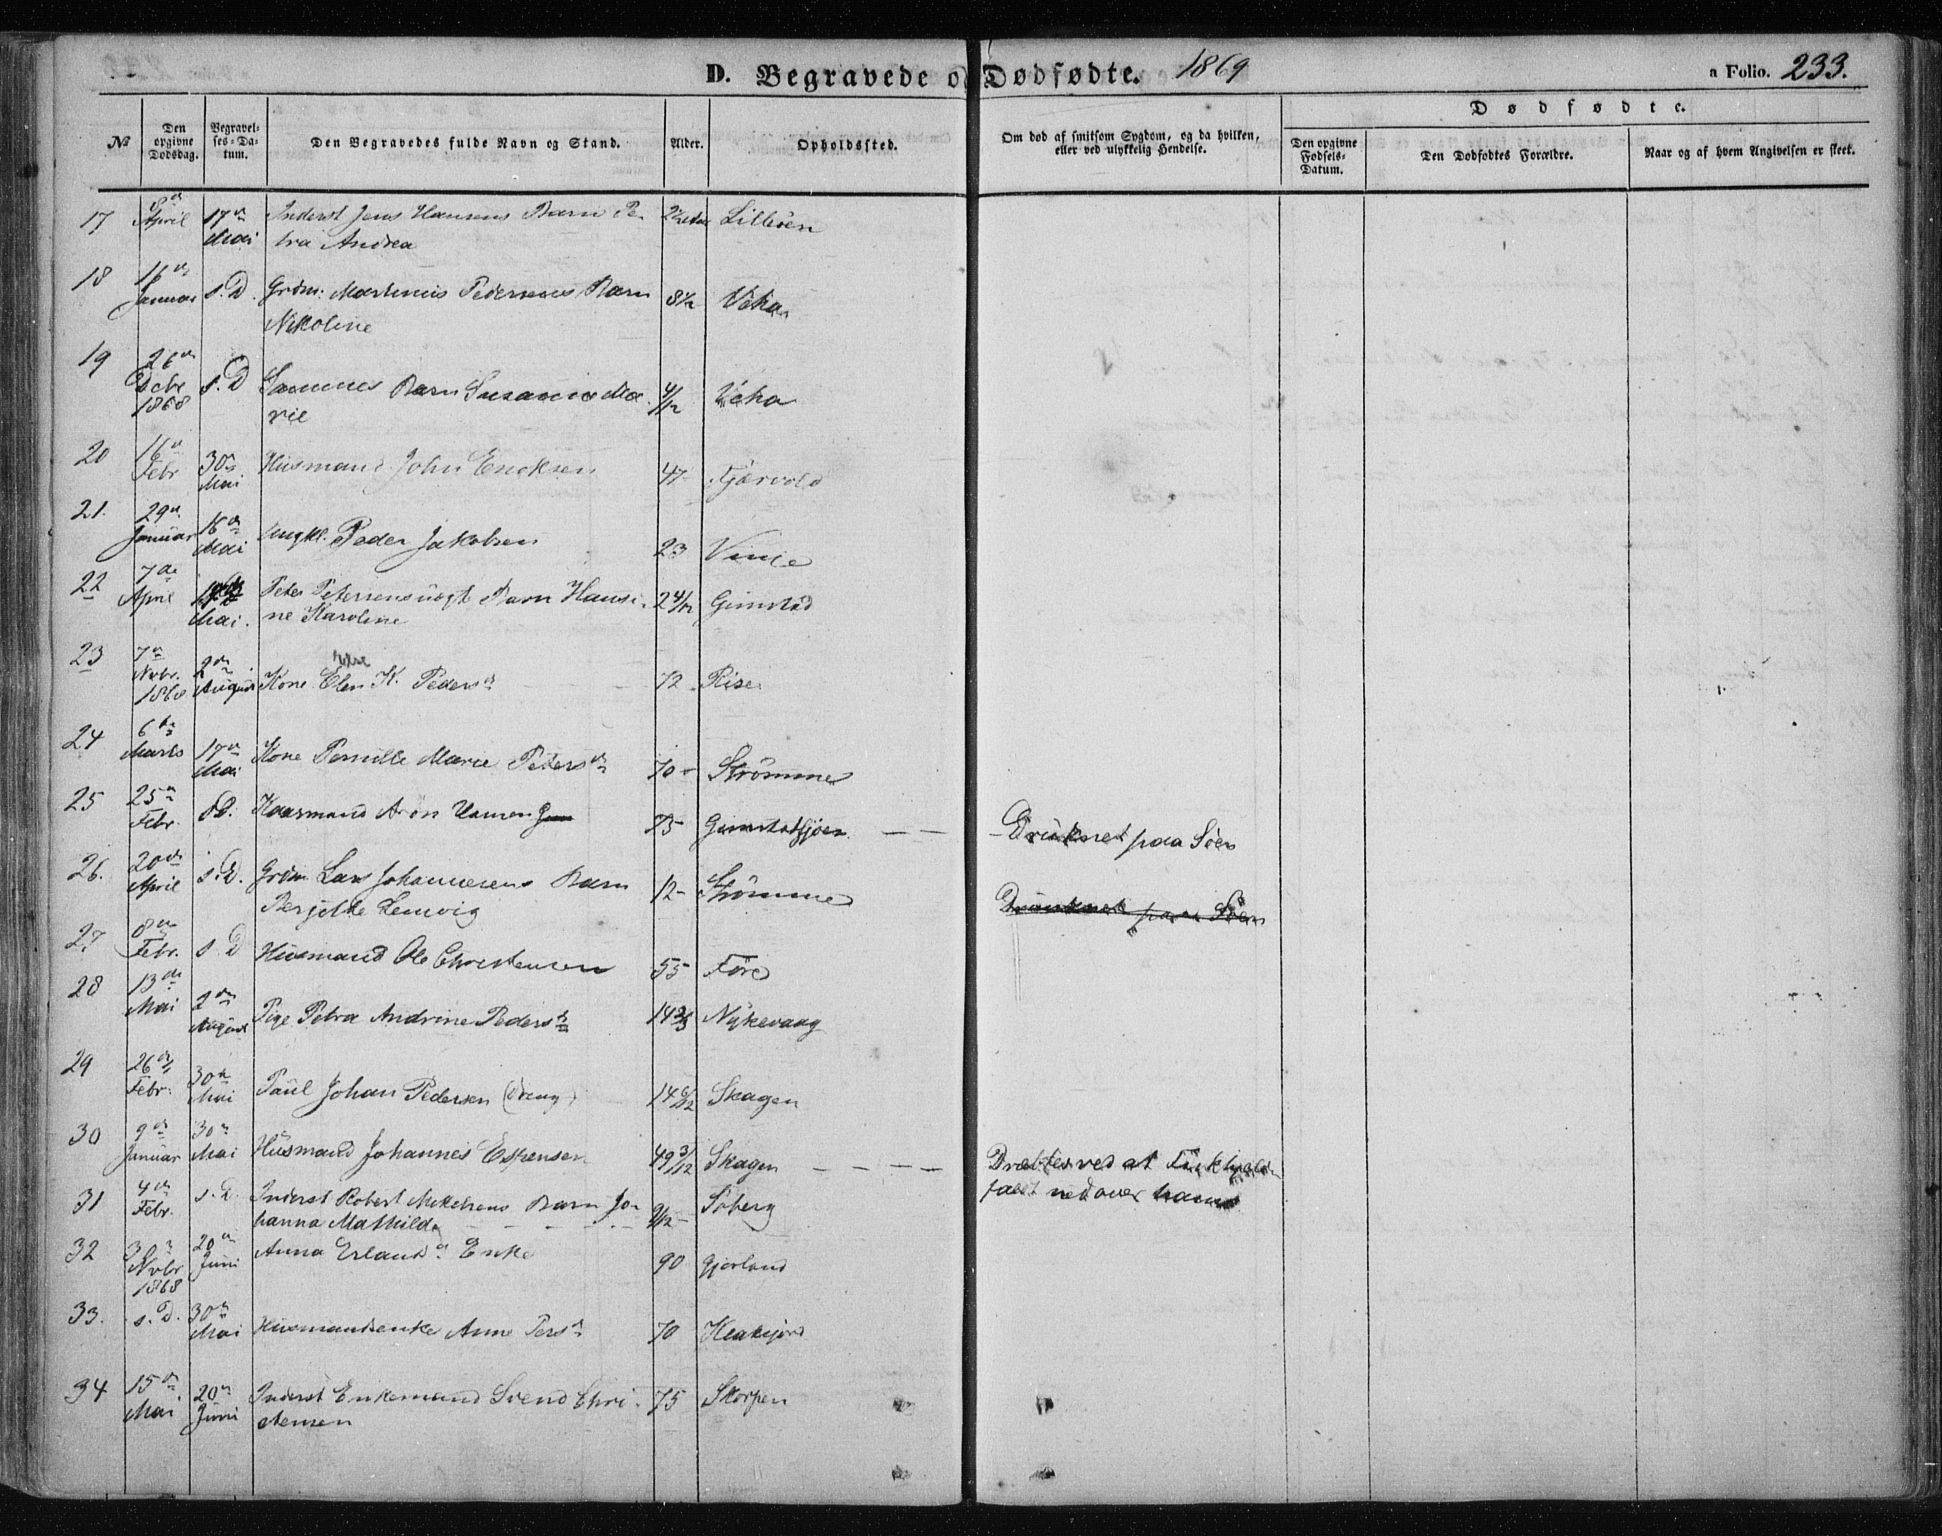 D. Begravede og Dødfødte. 1869
a Folio. 233.
Dødfødte.
№
Den opgivne Dødsdag.
Begravelses-Datum.
Den Begravedes fulde Navn og Stand.
Alder.
Opholdssted.
Om død af smitsom Sygdom, og da hvilken, eller ved ulykkelig Hendelse.
Den opgivne Fødsels-Datum.
Den Dødfødtes Forældre.
Naar og af hvem Angivelsen er skeet.
17 8de April 17de Mai Inderst Jens Hansens Barn Pe-
tra Andrea Lilleøen
18 16de Januar s. D. Grdm. Martinus Pedersens Barn 8/12
Nikoline
19 26de Decbr 1868 s. D Sammes Barn Susanna Ma- 4/12
rie
20 16de Febr 30de Mai Husmand John Enoksen 47 Fjærvold
21. 29de Januar 16de Mai Ungkl. Peder Jakobsen 23 Vinje
22 7de April Mai. Peter Petersensvogt Barn Hansi- 2 4/12 Gimstad
ne Karoline
23 7de Nvbr. 1868 2de August Kone Elen K. Pedersd 72 Rise
24 6te Marts 17de Mai Kone Pernille Marie Petersd 70 Strømme
25 25de Febr. s. D. Kaarmand Aron Hansen 75 — — Druknet paa Søen
26. 20de April s. D. Grdm Lars Johannesens Barn 12 Strømme Druknet paa Søen
Berjitte Lemvig
27 8de Febr. s. D Husmand Ole Christensen 55 Føre
28 13de Mai 2de August Pige Petra Andrine Pedersd 14 Nykevaag
29 26de Febr: 30de Mai Paul Johan Pedersen (Dreng) 14 Skagen
30 9de Januar 30de Mai Husmand Johannes Espensen 49 3/12 Skagen — — — — Dræbtes ved at
faldt ned over ham
31 4de Febr. s. D. Inderst Robert Mikkelsens Barn Jo- 9/12 Søberg
hanna Mathilde
32 30 Nvbr 1868 20de Juni Anna Erlandsd Enke 90 Gjerland
33. s. D. 30de Mai Husmandsenke Anne Persd 70
34 15de Mai 20de Juni Inderst Enkemand Svend Chri- 75 Skorpen
stensen